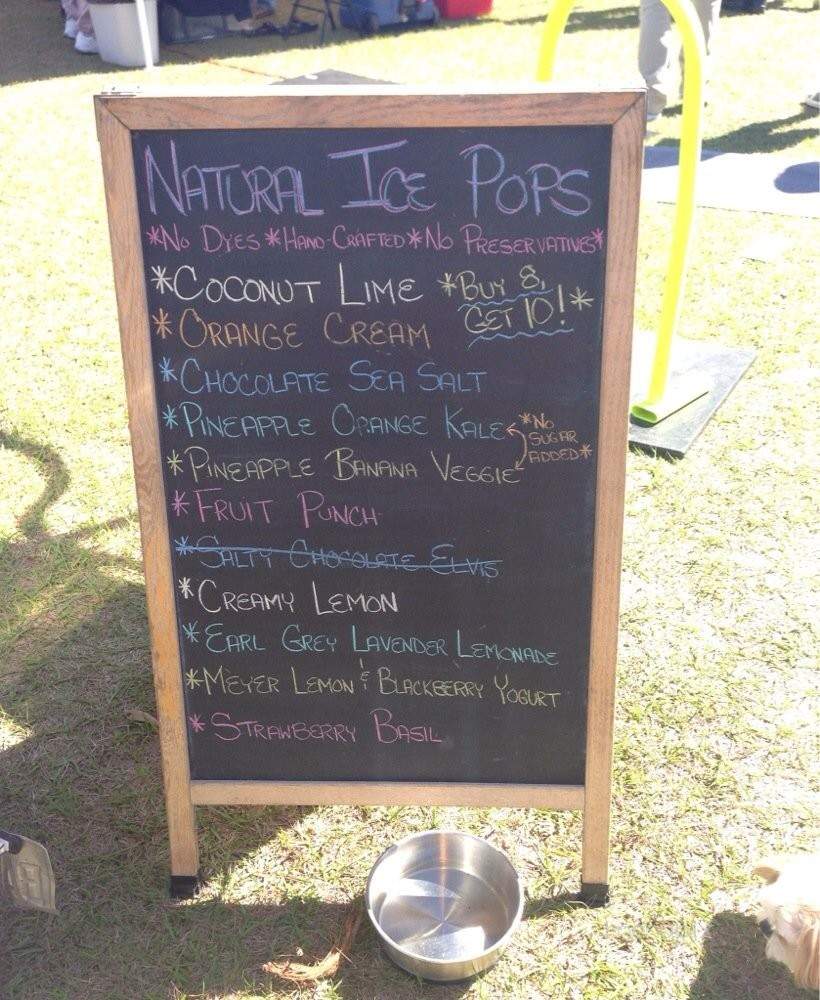 Natural Ice Pops
*No Dyes *Hand-Crafted *No Preservatives*
*Coconut Lime
*Buy 8,
Get 10!*
*Orange Cream
*Chocolate Sea Salt
*Pineapple Orange Kale
*No
Sugar
Added*
*Pineapple Banana Veggie
*Fruit Punch
*Salty Chocolate Elvis
*Creamy Lemon
*Earl Grey Lavender Lemonade
*Meyer Lemon & Blackberry Yogurt
*Strawberry Basil